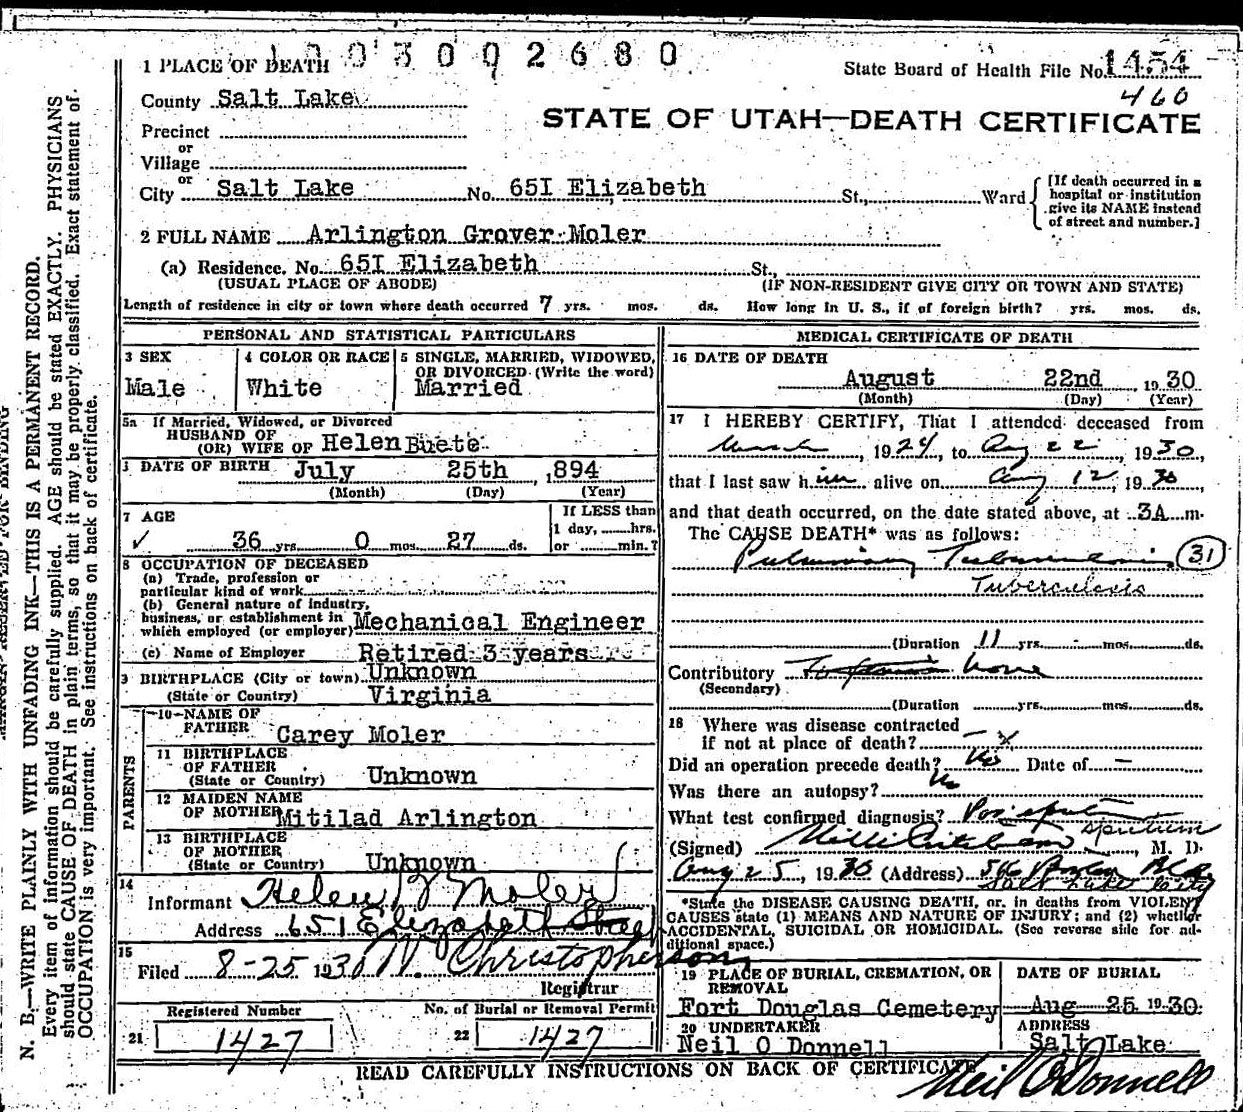 1003002680
1 PLACE OF DEATH
State Board of Health File No. 1454
460
County Salt Lake
STATE OF UTAH—DEATH CERTIFICATE
Precinct
or
Village
or
City Salt Lake No. 65I Elizabeth St., Ward
[If death occurred in a
hospital or institution
give its NAME instead
of street and number.]
2 FULL NAME Arlington Grover Moler
(a) Residence. No. 65I Elizabeth St.,
(USUAL PLACE OF ABODE) (IF NON-RESIDENT GIVE CITY OR TOWN AND STATE)
Length of residence in city or town where death occurred 7 yrs. mos. ds. How long in U. S., if of foreign birth? yrs. mos. ds.
PERSONAL AND STATISTICAL PARTICULARS
3 SEX
Male
4 COLOR OR RACE
White
5 SINGLE, MARRIED, WIDOWED,
OR DIVORCED (Write the word)
Married
5a If Married, Widowed, or Divorced
HUSBAND OF
(OR) WIFE OF Helen Buete
DATE OF BIRTH July 25th ,894
(Month) (Day) (Year)
7 AGE
36 yrs. 0 mos. 27 ds.
If LESS than
1 day, hrs.
or min.?
8 OCCUPATION OF DECEASED
(a) Trade, profession or
particular kind of work
(b) General nature of industry,
business, or establishment in
which employed (or employer) Mechanical Engineer
(c) Name of Employer Retired 3 years
9 BIRTHPLACE (City or town) Unknown
(State or Country) Virginia
PARENTS
10—NAME OF
FATHER Carey Moler
11 BIRTHPLACE
OF FATHER
(State or Country) Unknown
12 MAIDEN NAME
OF MOTHER Mitilad Arlington
13 BIRTHPLACE
OF MOTHER
(State or Country) Unknown
14
Informant Helen B Moler
Address 651 Elizabeth Street
15
Filed 8-25 1930 W. Christopherson
Registrar
Registered Number
21 1427
No. of Burial or Removal Permit
22 1427
MEDICAL CERTIFICATE OF DEATH
16 DATE OF DEATH
August 22nd, 1930
(Month) (Day) (Year)
17 I HEREBY CERTIFY, That I attended deceased from
March, 1924, to Aug 22, 1930,
that I last saw him alive on Aug 12, 1930,
and that death occurred, on the date stated above, at 3A m.
The CAUSE DEATH* was as follows:
Pulmonary Tuberculosis 31
Tuberculosis
(Duration 11 yrs. mos. ds.
Contributory none
(Secondary)
(Duration yrs. mos. ds.
18 Where was disease contracted
if not at place of death? X
Did an operation precede death? No Date of —
Was there an autopsy? No
What test confirmed diagnosis? Pos sputum
sputum
(Signed) M. D.
Aug 25, 1930 (Address)
Salt Lake City
*State the DISEASE CAUSING DEATH, or, in deaths from VIOLENT
CAUSES state (1) MEANS AND NATURE OF INJURY; and (2) whether
ACCIDENTAL, SUICIDAL OR HOMICIDAL. (See reverse side for ad-
ditional space.)
19 PLACE OF BURIAL, CREMATION, OR
REMOVAL
Fort Douglas Cemetery
DATE OF BURIAL
Aug 25 1930
20 UNDERTAKER
Neil O Donnell
ADDRESS
Salt Lake
READ CAREFULLY INSTRUCTIONS ON BACK OF CERTIFICATE
Neil O'Donnell
N. B.—WRITE PLAINLY WITH UNFADING INK—THIS IS A PERMANENT RECORD.
Every item of information should be carefully supplied. AGE should be stated EXACTLY. PHYSICIANS
should state CAUSE OF DEATH in plain terms, so that it may be properly classified. Exact statement of
OCCUPATION is very important. See instructions on back of certificate.